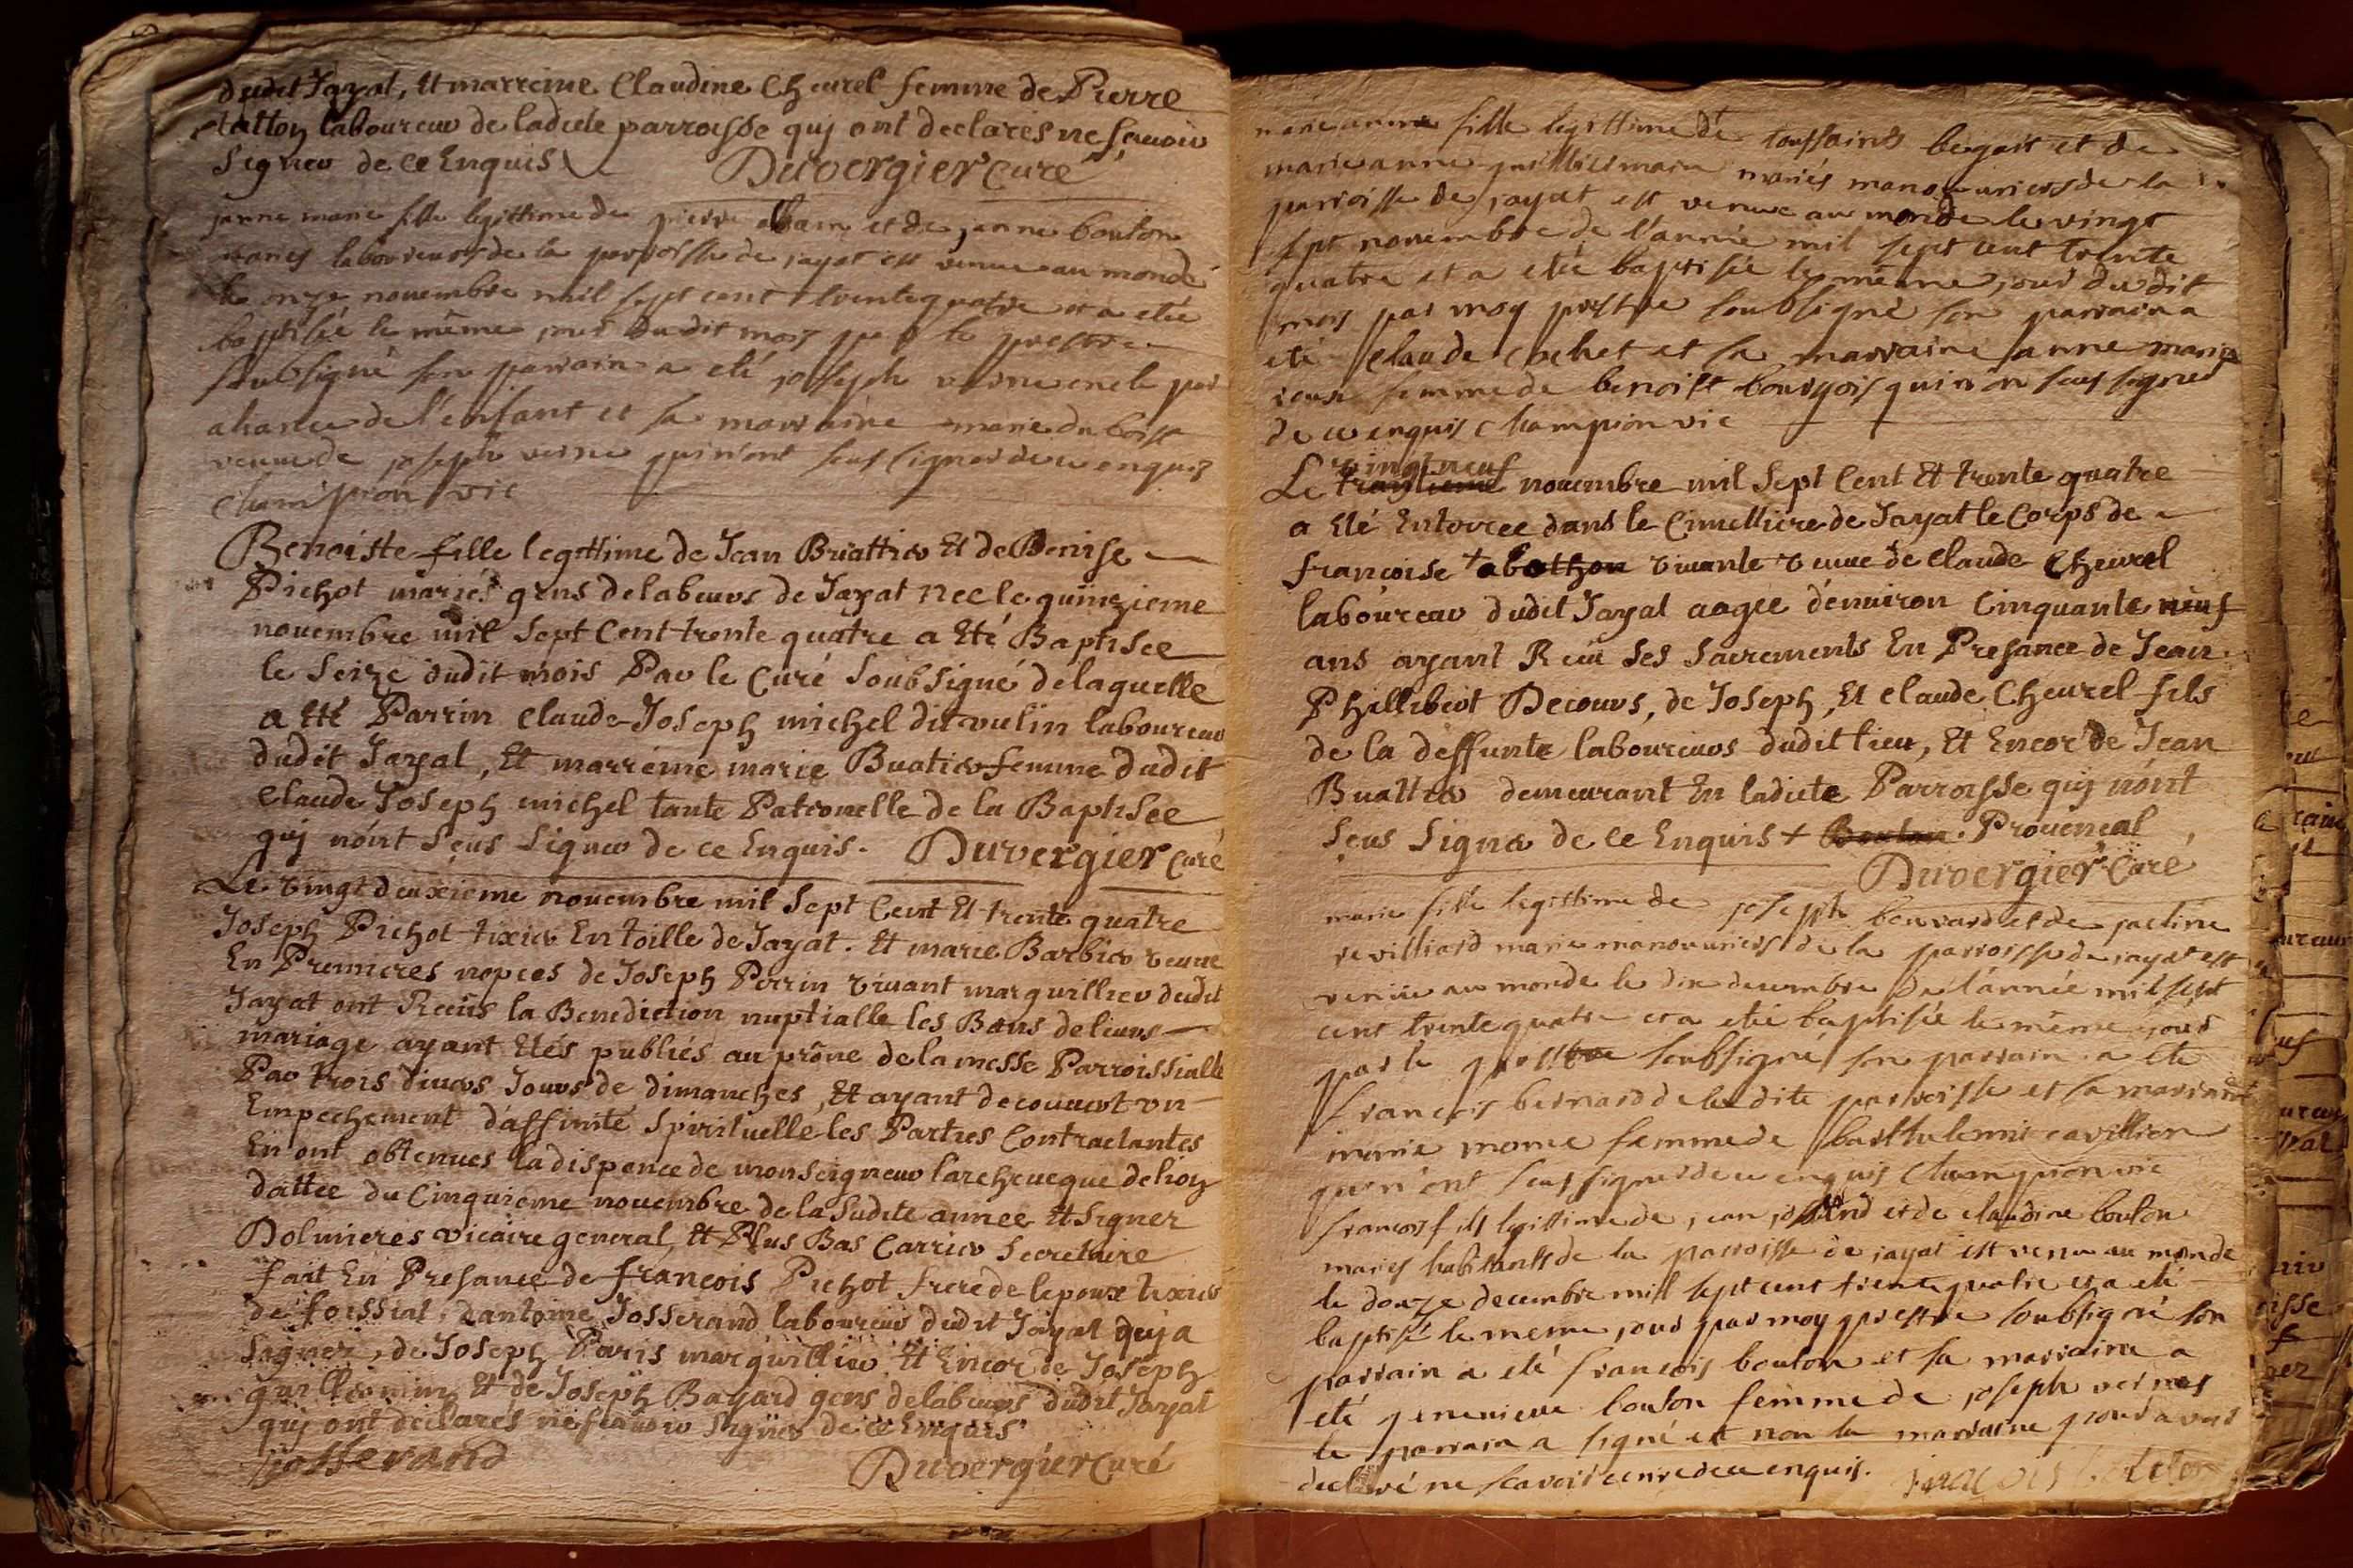 dudit Jayat, Et marreine Claudine Cheurel femme de Pierre
laboureur de ladicte parroisse quj ont declarés ne scauoir
Signer de ce Enquis Duvergier Curé
janne marie fille legittime de pierre et de janne bouton
mariés laboureurs de la parroisse de jayat est venue au monde
le onze nouembre mil sept cent trente quatre et a eté
baptisée le même jour du dit mois par le prestre
soubsigné son parrain a eté joseph verne oncle par
aliance de l'enfant et sa marraine marie du boist
veuue de joseph verne qui n'ont sceu signer de ce enquis
Champion vic
Benoiste fille legittime de Jean Buattier Et de Denise
Pichot mariés gens de labeurs de Jayat née le quinzieme
nouembre mil Sept Cent trente quatre a Eté Baptisee
le Seize dudit mois Par le Curé Soubsigné de laquelle
a Eté Parrin Claude Joseph michel dit vulin laboureur
dudit Jayat, Et marreine marie Buatier femme dudit
Claude Joseph michel tante Patronelle de la Baptisee
quj nónt Sçus Signer de ce Enquis. Duvergier Curé
Le vingt deuxieme nouembre mil Sept Cent Et trente quatre
Joseph Pichot tixier En toille de Jayat. Et marie Barbier veuue
En Premieres nopces de Joseph Perrin viuant marguillier dudit
Jayat ont Reçüs la Benediction nuptialle les Bans de leurs
mariage ayant Etés publiés au prône de la messe Parroissialle
Par trois diuers Jours de dimanches, Et ayant decouuert vn
Empechement d'affinité Spirituelle les Parties Contractantes
En ont obtenues la dispence de monseigneur larcheueque de lion
dattee du Cinquieme nouembre de la Sudite annee Et Signer
Dolmieres vicaire general, Et Plus Bas Carrier Secretaire
fait En Presance de francois Pichot frere de lepoux tixier
de foissiat, dantoine Josserand laboureur dudit Jayat quj a
Signer, de Joseph Paris marguillier Et Encor de Joseph
guillermin Et de Joseph Bayard gens de labeurs dudit Jayat
quj ont déclarés ne scauoir Signer de ce Enquis
josserand Duvergier Curé
marie anne fille legittime de toussaint et de
marie anne mariés manouuriers de la
parroisse de jayat est venue au monde le vingt
sept nouembre de l'année mil sept cent trente
quatre et a etée baptisée le même jour dudit
mois par moy prestre soubsigné son parrain a
eté claude cochet et sa marraine anne marie
femme de benoist bourgois qui n'on sceu signer
de ce enquis Champion vic
vingt neuf
Le trantieme nouembre mil Sept Cent Et trente quatre
a Eté Enterree dans le Cimettiere de Jayat le Corps de
francoise + abothon viuante veuue de Claude Cheurel
laboureur dudit Jayat aagee dénuiron Cinquante neuf
ans ayant Reçü Ses Sacrements En Presance de Jean
Phillibert Decours, de Joseph, Et Claude Cheurel fils
de la deffunte laboureurs dudit lieu, Et Encor de Jean
Buattier demeurant En ladicte Parroisse quj nónt
Sçus Signer de ce Enquis + Bouton. Prouencal
Duvergier Curé
marie fille legittime de joseph bouvard et de jacline
revilliard marie manouuriers de la parroisse de jayat est
venüe au monde le dix decembre de l'année mil sept
cent trente quatre et a etée baptisée le même jour
par le prestre soubsigné son parrain a eté
francois bernard de la dite parroisse et sa marraine
marie femme de barthelemie
qui n'ont sceu signer de ce enquis Champion vic
francois fils legittime de jean josserand et de claudine bouton
mariés habitants de la parroisse de jayat est venu au monde
le douze decembre mil sept cent trente quatre et a eté
baptisé le meme jour par moy prestre soubsigné son
parrain a eté francois bouton et sa marraine a
eté genevieue bouton femme de joseph vernes
le parrain a signé et non la marraine pour avoir
declaré ne scavoir de ce enquis. francois bouton